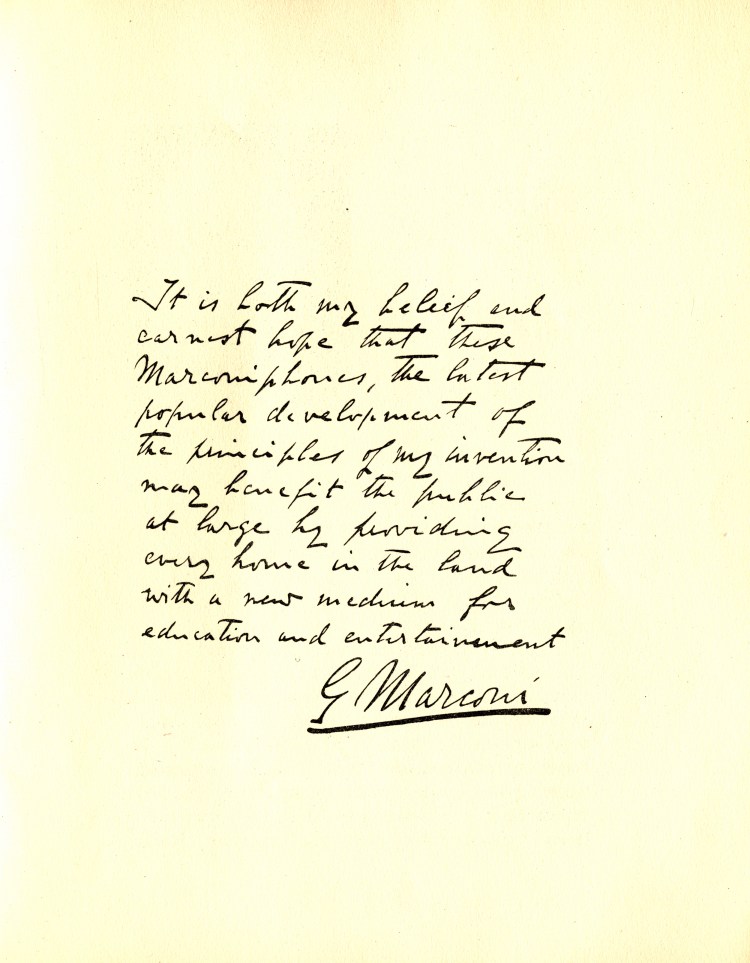 It is both my belief and
earnest hope that these
Marconiphones, the latest
popular development of
the principles of my invention
may benefit the public
at large by providing
every home in the land
with a new medium for
education and entertainment
G Marconi